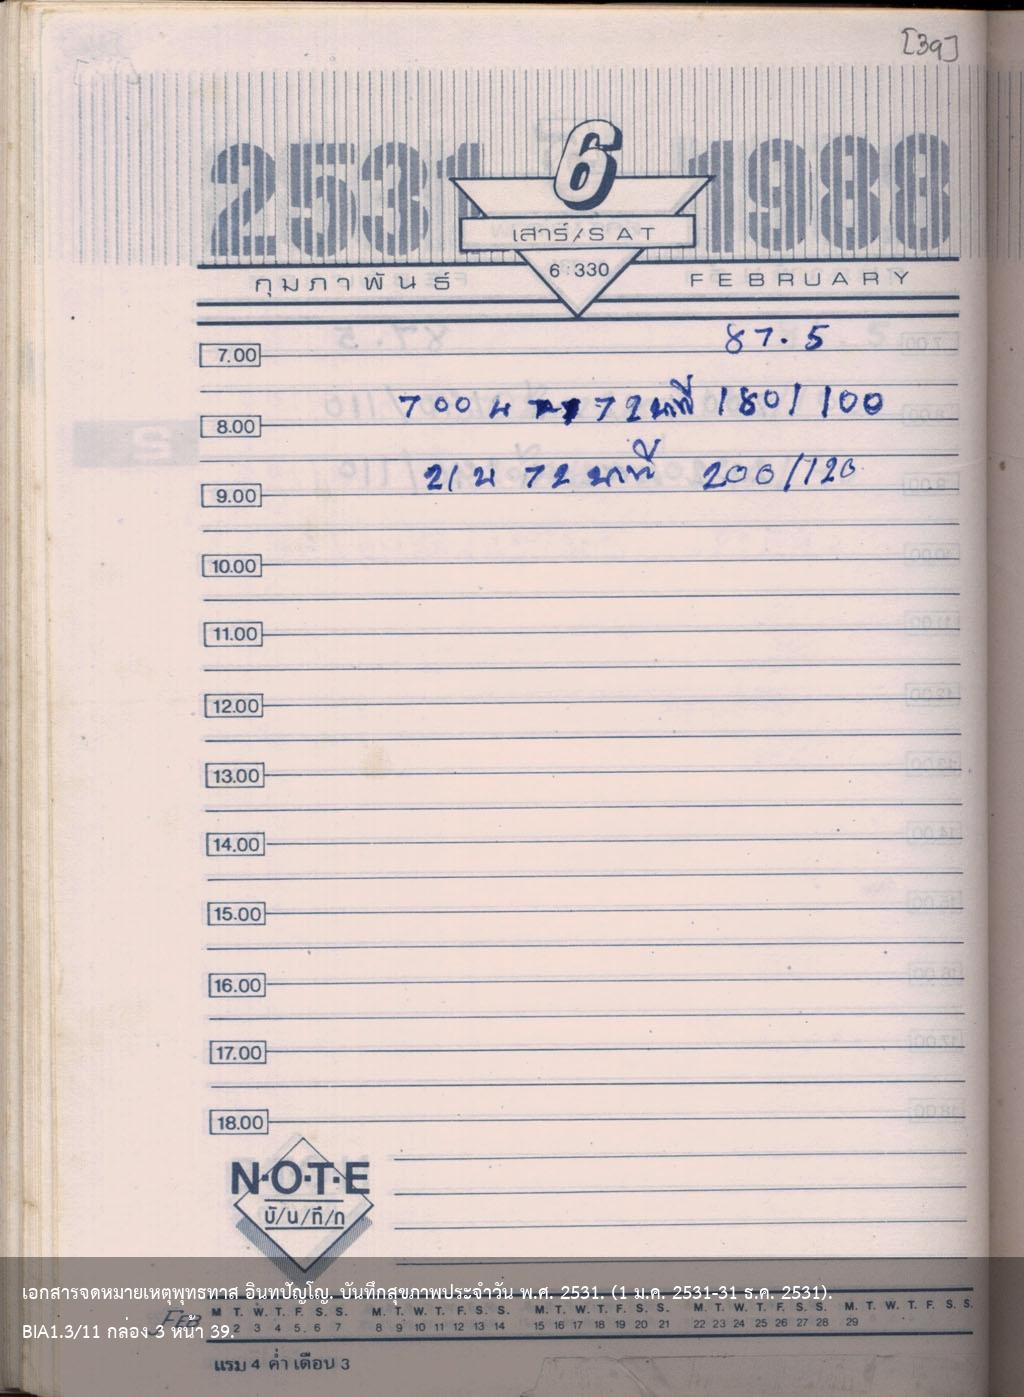 [39]
2531 6 1988
เสาร์/SAT
6:330
กุมภาพันธ์ FEBRUARY
87.5
7.00
700 น 72 นาที 180/100
8.00
21 น 72 นาที 200/120
9.00
10.00
11.00
12.00
13.00
14.00
15.00
16.00
17.00
18.00
N·O·T·E
บั/น/ทึ/ก
เอกสารจดหมายเหตุพุทธทาส อินทปัญโญ. บันทึกสุขภาพประจำวัน พ.ศ. 2531. (1 ม.ค. 2531-31 ธ.ค. 2531).
FEB M. T. W. T. F. S. S. M. T. W. T. F. S. S. M. T. W. T. F. S. S. M. T. W. T. F. S. S. M. T. W. T. F. S. S.
BIA1.3/11 กล่อง 3 หน้า 39.
2 3 4 5 6 7 8 9 10 11 12 13 14 15 16 17 18 19 20 21 22 23 24 25 26 27 28 29
แรม 4 ค่ำ เดือน 3